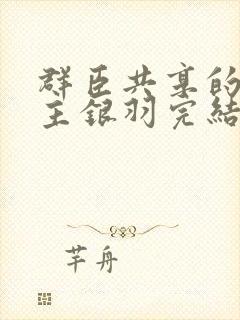 群臣共享的
主銀羽完結
芊舟